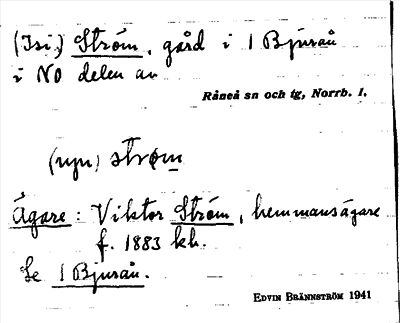 (Isi.) Ström, gård i 1 Bjurån
i NO delen av
Råneå sn och tg, Norrb. l.
(nyn) strøm
Ägare: Viktor Ström, hemmansägare
f. 1883 kh.
Se 1 Bjurån.
EDVIN BRÄNNSTRÖM 1941